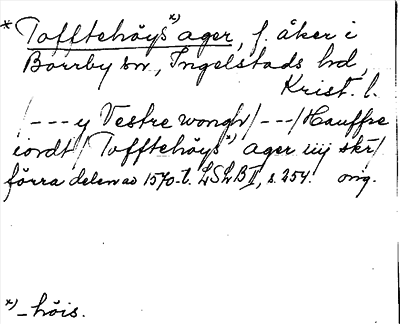 * Tofftehöys*) ager, f. åker i
Borrby sn, Ingelstads hd,
Krist. l.
/---y Vestre wongh/---/Hauffre
iordt/Tofftehöys*) ager iiij skr/
förra delen av 1570-t. LSLB II, s. 254. orig.
*) -höis.